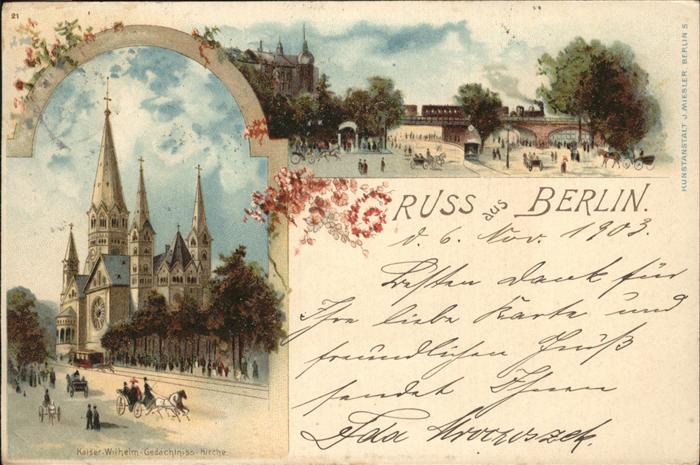 21
GRUSS aus BERLIN.
d. 6. Nov. 1903.
Besten Dank für
Ihre liebe Karte und
freundlichen Gruß
sendet Ihnen
Ida Mroczoszek.
Kaiser-Wilhelm-Gedächtniss-Kirche.
KUNSTANSTALT J. MIESLER, BERLIN S.